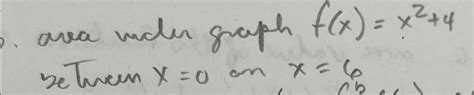 . area under graph f(x) = x²+4
between x = 0 an x = 6